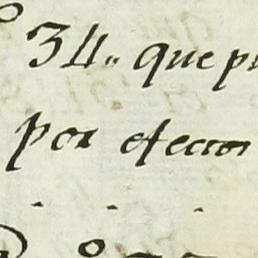 34,, que pu
por efecon